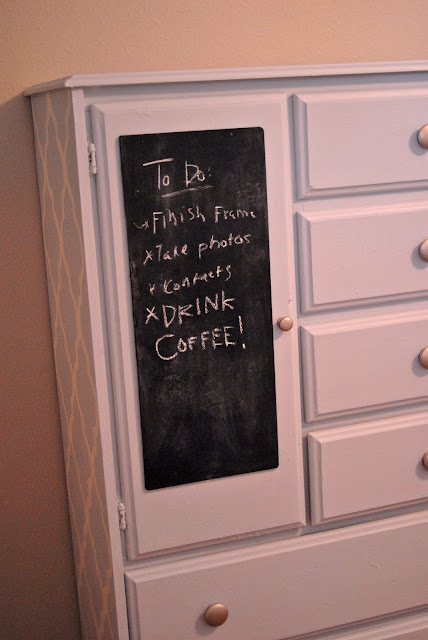 To Do:
x Finish Frame
x Take photos
x Contacts
x DRINK
COFFEE!